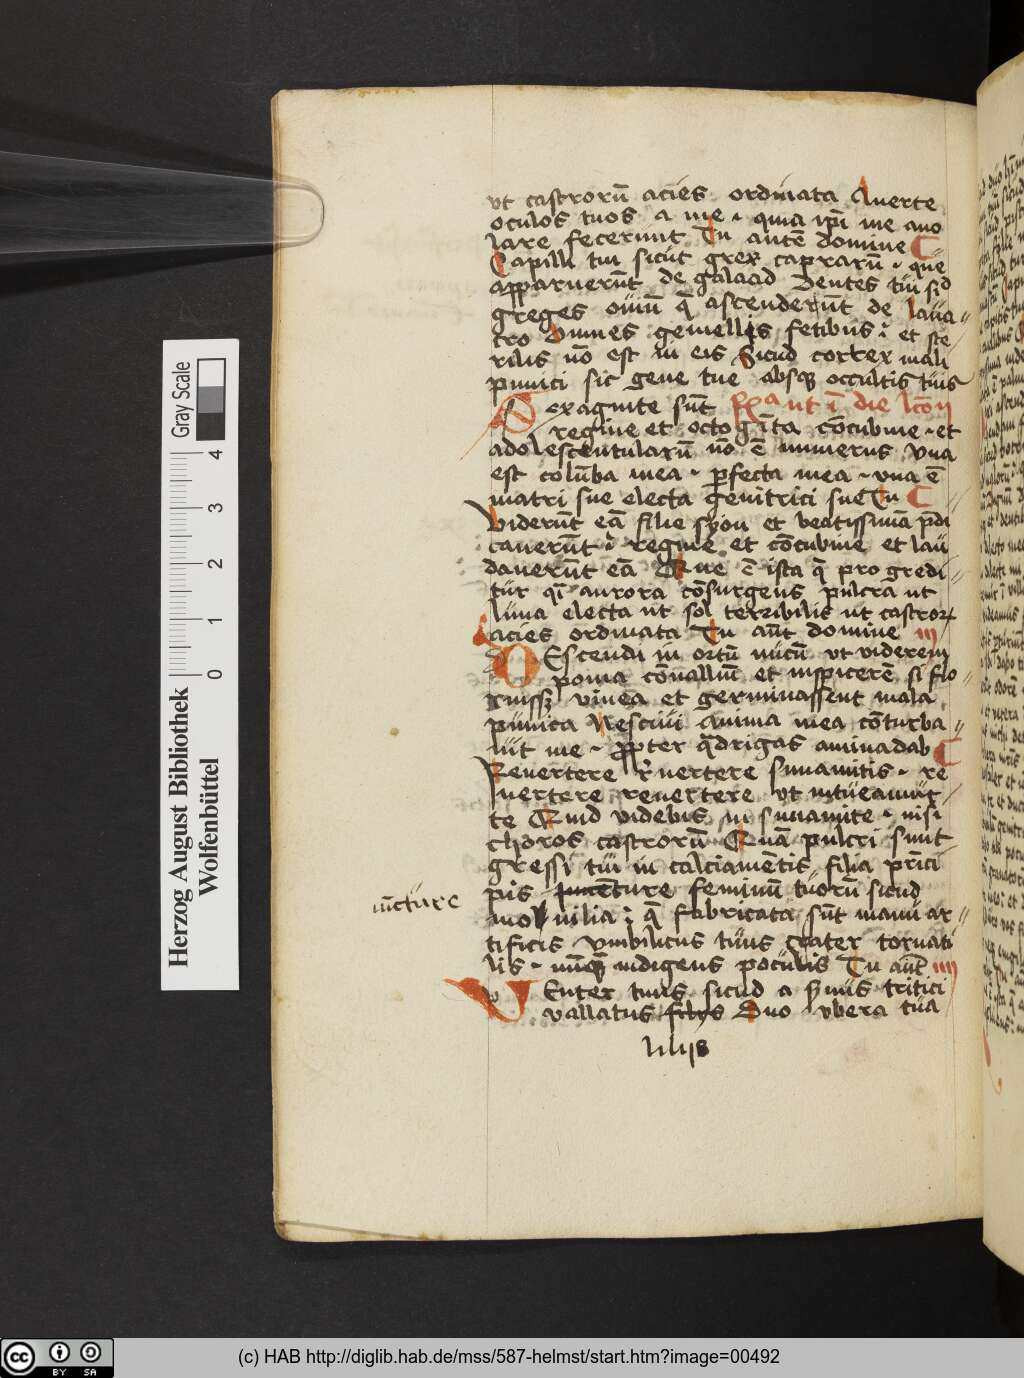 vt castrorū acies ordinata Auerte
oculos tuos a me · quia ip̄i me auo
lare fecerunt Tu autē domine
Capilli tui sicut grex caprarū · que
apparuerūt de galaad Dentes tui sid
greges ouiū q̄ ascenderūt de laua
cro Omnes gemellis fetibus : et ste
rilis nō est in eis Sicud cortex mali
punici sic gene tue absq occultis tuis
Sexaginte sūt ut ī die
regine et octogīta cōcubine · et
adolescentularū nō ē numerus Vna
est colūba mea · perfecta mea · vna ē
matri sue electa genitrici sue Tu
Viderūt eā filie syon et beatissimā p̄di
cauerūt : regine et cōcubine et lau
dauerūt eā Que ē ista q̄ progredi
tur q̄i aurora cōsurgens pulcra ut
luna electa ut sol terribilis ut castror
acies ordinata Tu aūt domine iii
DEscendi in ortū nucū vt viderem
poma cōuallium et inspicerē si flo
ruissz vinea et germinassent mala
punica Nesciui Anima mea cōturba
uit me · propter q̄drigas aminadab
Reuertere r̄uertere sunamitis · re
uertere reuertere vt intueamur
te Quid videbis in sunamite · nisi
choros castrorū Quā pulcri sunt
gressi tui in calciamētis filia prīci
pis iuncture feminū tuorū sicud
iūcture
monilia : q̄ fabricata sūt manu ar
tificis Vmbilicus tuus crater tornati
lis · nūq̄ indigens poculis Tu aūt iiii
VEnter tuus sicud aceruus tritici
vallatus filys Duo vbera tua
lilijs
Herzog August Bibliothek
Wolfenbüttel
0 1 2 3 4
Gray Scale
BY SA
(c) HAB http://diglib.hab.de/mss/587-helmst/start.htm?image=00492